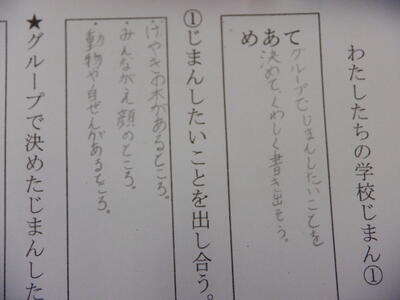 わたしたちの学校じまん①
めあて
グループでじまんしたいことを
決めて、くわしく書き出そう。
①じまんしたいことを出し合う。
・けやきの木があるところ。
・みんながえ顔のところ。
・動物や自ぜんがあるところ。
★グループで決めたじまんした